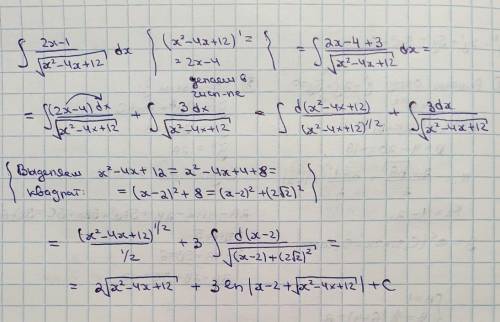 ∫ (2x-1)/√(x²-4x+12) dx { (x²-4x+12)' = = 2x-4 делаем в числ-ле } = ∫ (2x-4+3)/√(x²-4x+12) dx =
= ∫ (2x-4)dx/√(x²-4x+12) + ∫ 3dx/√(x²-4x+12) = ∫ d(x²-4x+12)/(x²-4x+12)^(1/2) + ∫ 3dx/√(x²-4x+12)
{ Выделяем x²-4x+12 = x²-4x+4+8=
квадрат: = (x-2)²+8 = (x-2)²+(2√2)² }
= (x²-4x+12)^(1/2)/(1/2) + 3 ∫ d(x-2)/√((x-2)+(2√2)²) =
= 2√(x²-4x+12) + 3 ln|x-2+√(x²-4x+12)| + C